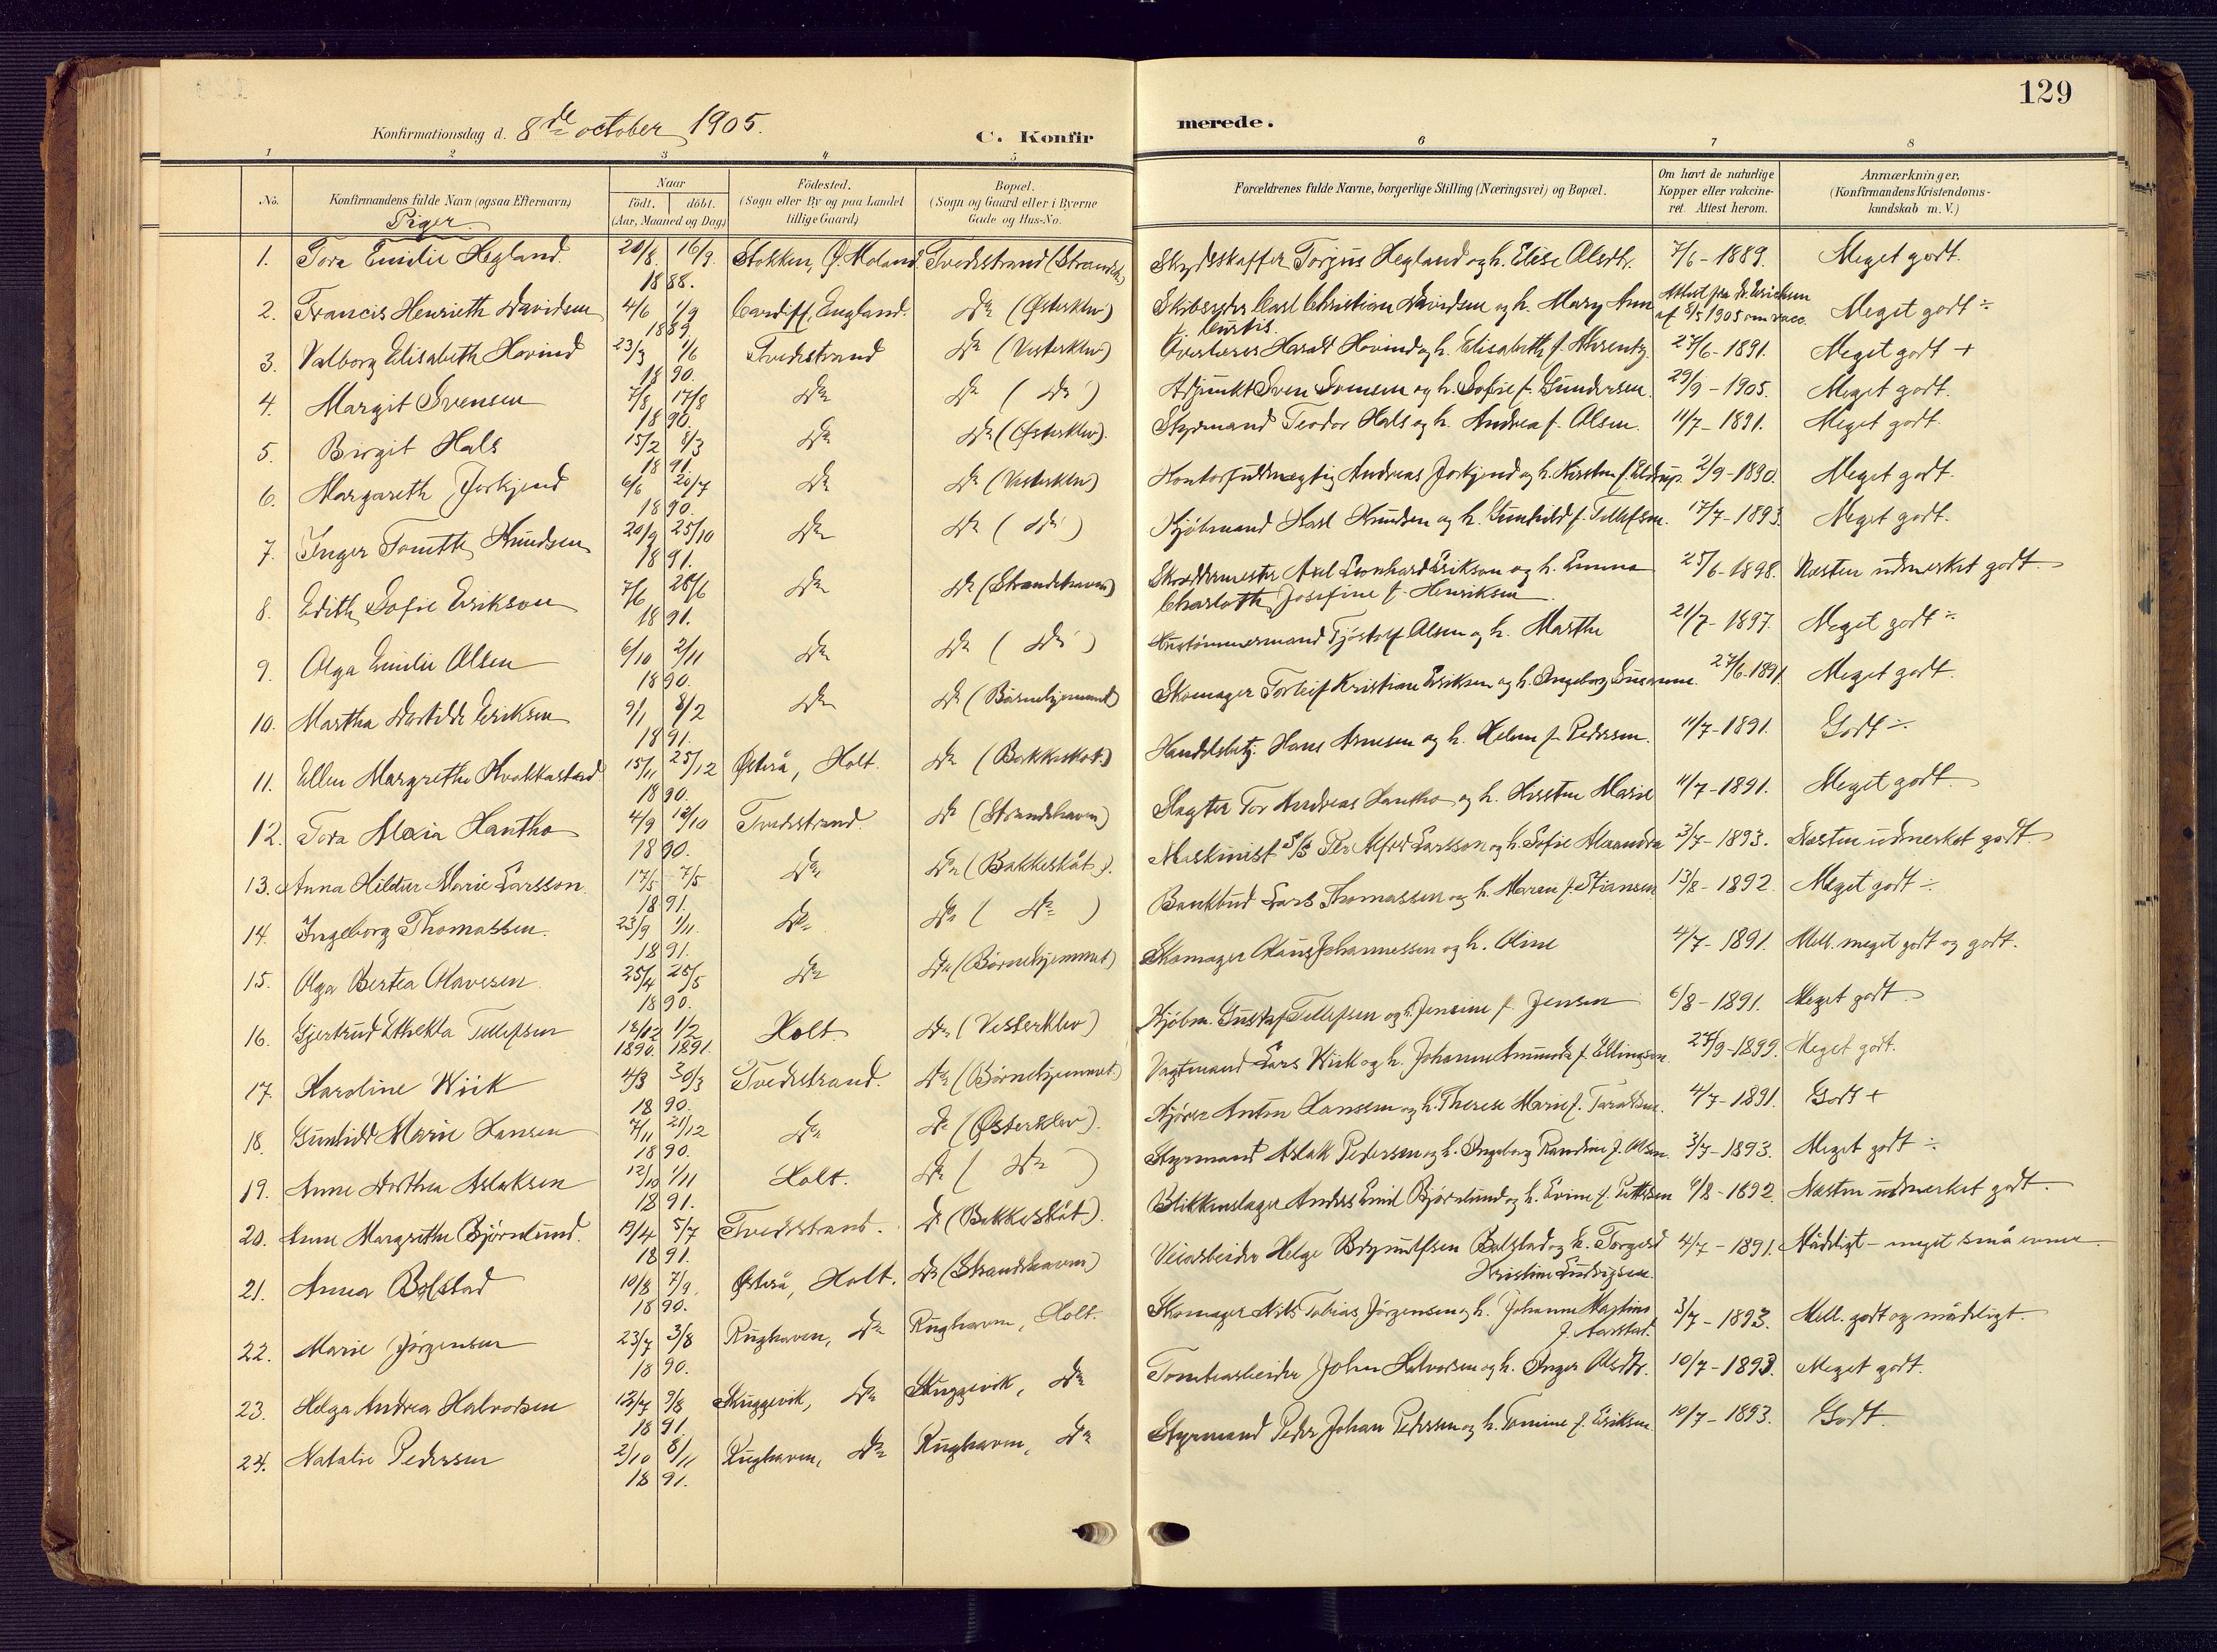 129
Konfirmationsdag d. 8de october 1905.
C. Konfirmerede.
1 2 3 4 5 6 7 8
No. Konfirmandens fulde Navn (ogsaa Efternavn) Naar født. døbt. (Aar, Maaned og Dag) Fødested. (Sogn eller By og paa Landet tillige Gaard) Bopæl. (Sogn og Gaard eller i Byerne Gade og Hus-No. Forældrenes fulde Navne, borgerlige Stilling (Næringsvei) og Bopæl. Om havt de naturlige Kopper eller vakcineret. Attest herom. Anmærkninger. (Konfirmandens Kristendomskundskab m. V.)
Piger
1. Tora Emilie Hegland. 20/8 16/9 1888. Stokken, Ø. Moland. Tvedestrand Skydsskaffer Torjus Hegland og h. Elise Olsdtr. 7/6 - 1889. Meget godt.
2. Francis Henrieth Davidsen 4/6 1/9 1889. Cardiff, England. Do (Østerklev) Skibsreder Carl Christian Davidsen og h. Mary Ann Curtis. Attest fra Dr. Erichsen af 8/5 1905 om vacc. Meget godt ÷
3. Valborg Elisabeth Hovind 23/3 1/6 1890. Tvedestrand Do (Vesterklev) Overlærer Harald Hovind og h. Elisabeth f. Ahrentz. 27/6 - 1891. Meget godt +
4. Margit Svensen 7/8 17/8 1890. Do Do ( Do ) Adjunkt Sven Svensen og h. Sofie f. Gundersen. 29/9 - 1905. Meget godt.
5. Birgit Hals 15/2 8/3 1891. Do Do (Østerklev). Styrmand Teodor Hals og h. Andrea f. Olsen. 11/7 - 1891. Meget godt.
6. Margareth Jorkjend 6/6 20/7 1890. Do Do (Vesterklev) Kontorfuldmægtig Andreas Jorkjend og h. Kirsten f. Eldrup. 2/9 - 1890. Meget godt.
7. Inger Tomette Knudsen 20/9 25/10 1891. Do Do ( Do ) Kjøbmand Karl Knudsen og h. Gunhild f. Tellefsen. 17/7 - 1893. Meget godt.
8. Edith Sofie Erikson 7/6 28/6 1891. Do Do (Strandshaven) Skræddermester Axel Leonhard Erikson og h. Emma Charlotte Josefine f. Henriksen. 25/6 - 1898. Næsten udmerket godt.
9. Olga Emilie Olsen 6/10 2/11 1890. Do Do ( Do ) Hustømmermand Tjøstolf Olsen og h. Marthe 21/7 - 1897. Meget godt ÷
10. Martha Eriksen 9/1 8/2 1891. Do Do (Børnehjemmet) Skomager Torleif Kristian Eriksen og h. Ingeborg Susanne. 27/6 - 1891. Meget godt.
11. Ellen Margrethe 15/11 25/12 1890. Østerå, Holt. Do (Bakkeskot) Handelsbetj. Hans Arnesen og h. Helene f. Pedersen. 11/7 - 1891. Godt ÷
12. Tora Maria Hantho 4/9 12/10 1890. Tvedestrand. Do (Strandshaven) Slagter Tor Andreas Hantho og h. Kirstine Marie 11/7 - 1891. Meget godt.
13. Anna Hildur Marie Larsson. 17/5 7/5 1891. Do Do (Bakkeskåt). Maskinist S/S Per Alfred Larsson og h. Sofie Alexandra 3/7 - 1893. Næsten udmerket godt.
14. Ingeborg Thomassen. 23/9 1/11 1891. Do Do ( Do ) Bankbud Lars Thomassen og h. Maren f. Stiansen 13/8 - 1892. Meget godt ÷
15. Olga Bertea Olavesen 25/4 25/5 1890. Do Do (Børnehjemmet) Skomager Olaus Johannessen og h. Oline 4/7 - 1891. Mell. meget godt og godt.
16. Gjertrud Thekla Tellefsen 18/12 1890. 1/2 1891. Holt. Do (Vesterklev) Kjøbm. Gustaf Tellefsen og h. Jensine f. Jensen 6/8 - 1891. Meget godt
17. Karoline Wiik 4/3 30/3 1890. Tvedestrand. Do (Børnehjemmet) Vagtmand Lars Wiik og h. Johanne Amunda f. Ellingsen. 27/9 - 1899. Meget godt.
18. Gunhild Marie Hansen 7/11 21/12 1890. Do Do (Østerklev). Kjører Anton Hanssen og h. Therese Marie f. Taraldsen. 4/7 - 1891. Godt +
19. Anne Dorthea Aslaksen 12/10 1/11 1891. Holt. Do ( Do ) Styrmand Aslak Pedersen og h. Ingeborg Randine f. Olsen. 3/7 - 1893. Meget godt ÷
20. Anne Margrethe Bjørnlund. 19/4 5/7 1891. Tvedestrand. Do (Bakkeskåt). Blikkenslager Anders Emil Bjørnlund og h. Evine f. 6/8 - 1892. Næsten udmerket godt.
21. Anna Bolstad 10/8 7/9 1890. Østerå, Holt. Do (Strandshaven) Veiarbeider Helge Brynulfsen Bolstad og h. Torgerd Kristine Ludvigsen. 4/7 - 1891. Mådeligt - meget små evner.
22. Marie Jørgensen 23/7 3/8 1890. Rughaven, Do Rughaven, Holt. Skomager Nils Tobias Jørgensen og h. Johanne Martine f. Aarstad. 3/7 - 1893. Mell. godt og mådeligt.
23. Helga Andrea Halvorsen 12/7 9/8 1891. Skuggevik, Do Skuggevik, Do Tomtearbeider John Halvorsen og h. Inger Olsdtr. 10/7 - 1893. Meget godt.
24. Natalie Pedersen 2/10 8/11 1891. Rughaven, Do Rughaven, Do Styrmand Peder Johan Pedersen og h. Tomine f. Eriksen. 10/7 - 1893. Godt.